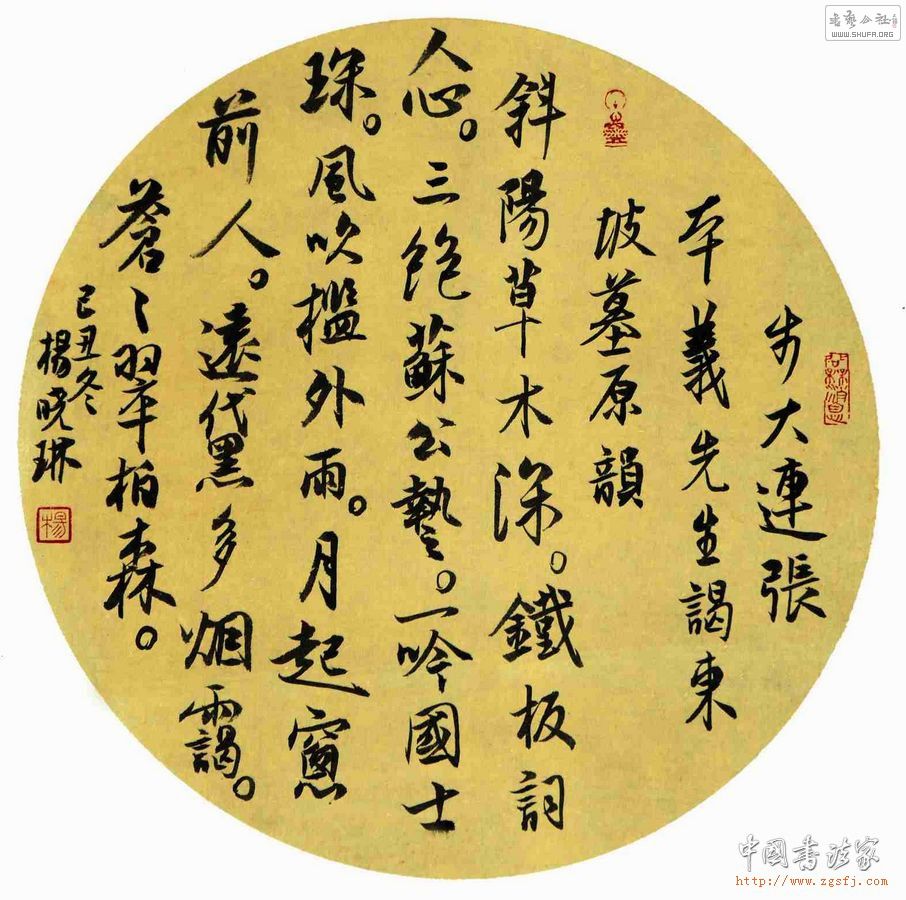 書藝公社
WWW.SHUFA.ORG
步大連張
本義先生謁東
坡墓原韻
斜陽草木深。鐵板詞
人心。三絶蘇公藝。一吟國士
琛。風吹檻外雨。月起窻
前人。遠黛多烟靄。
蒼〻翠柏森。
己丑冬
楊晓琳
楊
中國书法家
http://www.zgsfj.com